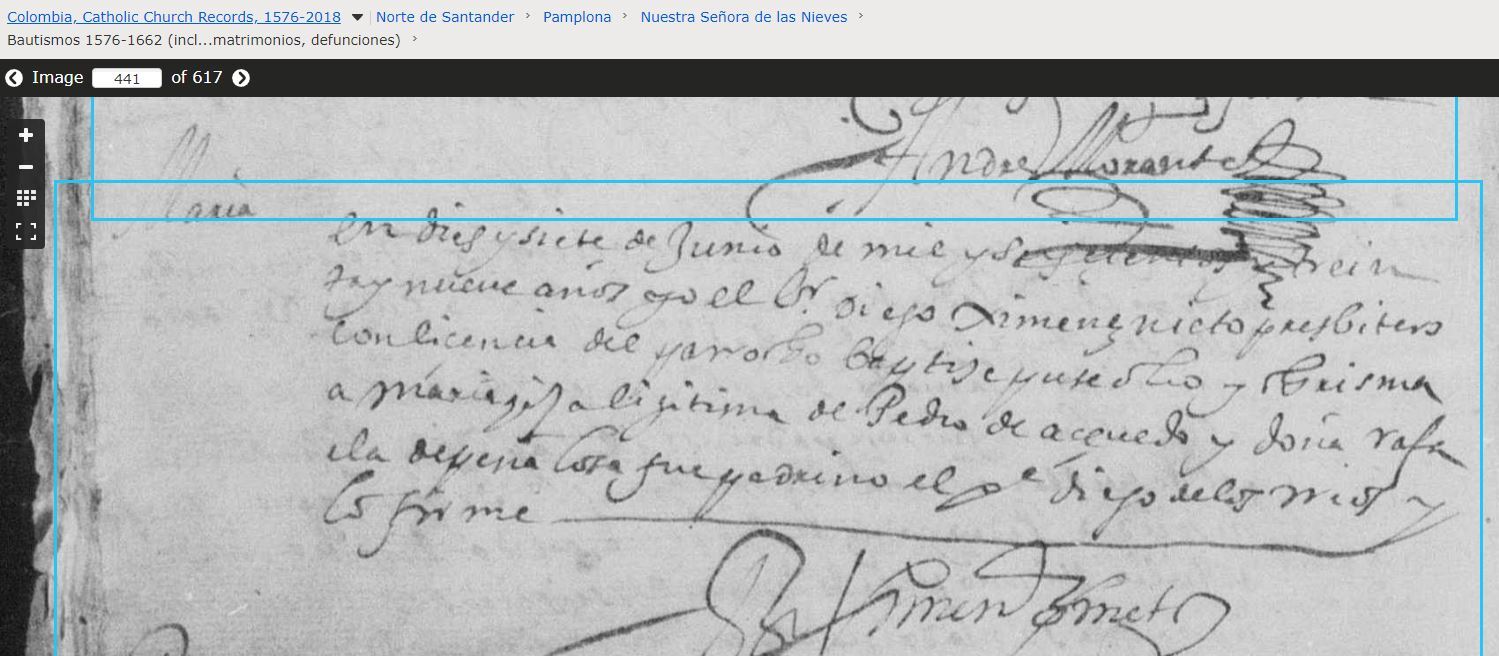 Colombia, Catholic Church Records, 1576-2018 Norte de Santander › Pamplona › Nuestra Señora de las Nieves ›
Bautismos 1576-1662 (incl...matrimonios, defunciones) ›
Image 441 of 617
Andres Morante
Maria
en diez y siete de Junio de mil y seyscientos y trein
ta y nueve años yo el Br Diego Ximenez nieto presbitero
con licencia del parrocho baptise y puse oleo y chrisma
a maria hija ligitima de Pedro de açevedo y doña rafa
ela de peña losa fue padrino el pe diego de los rrios y
lo firme